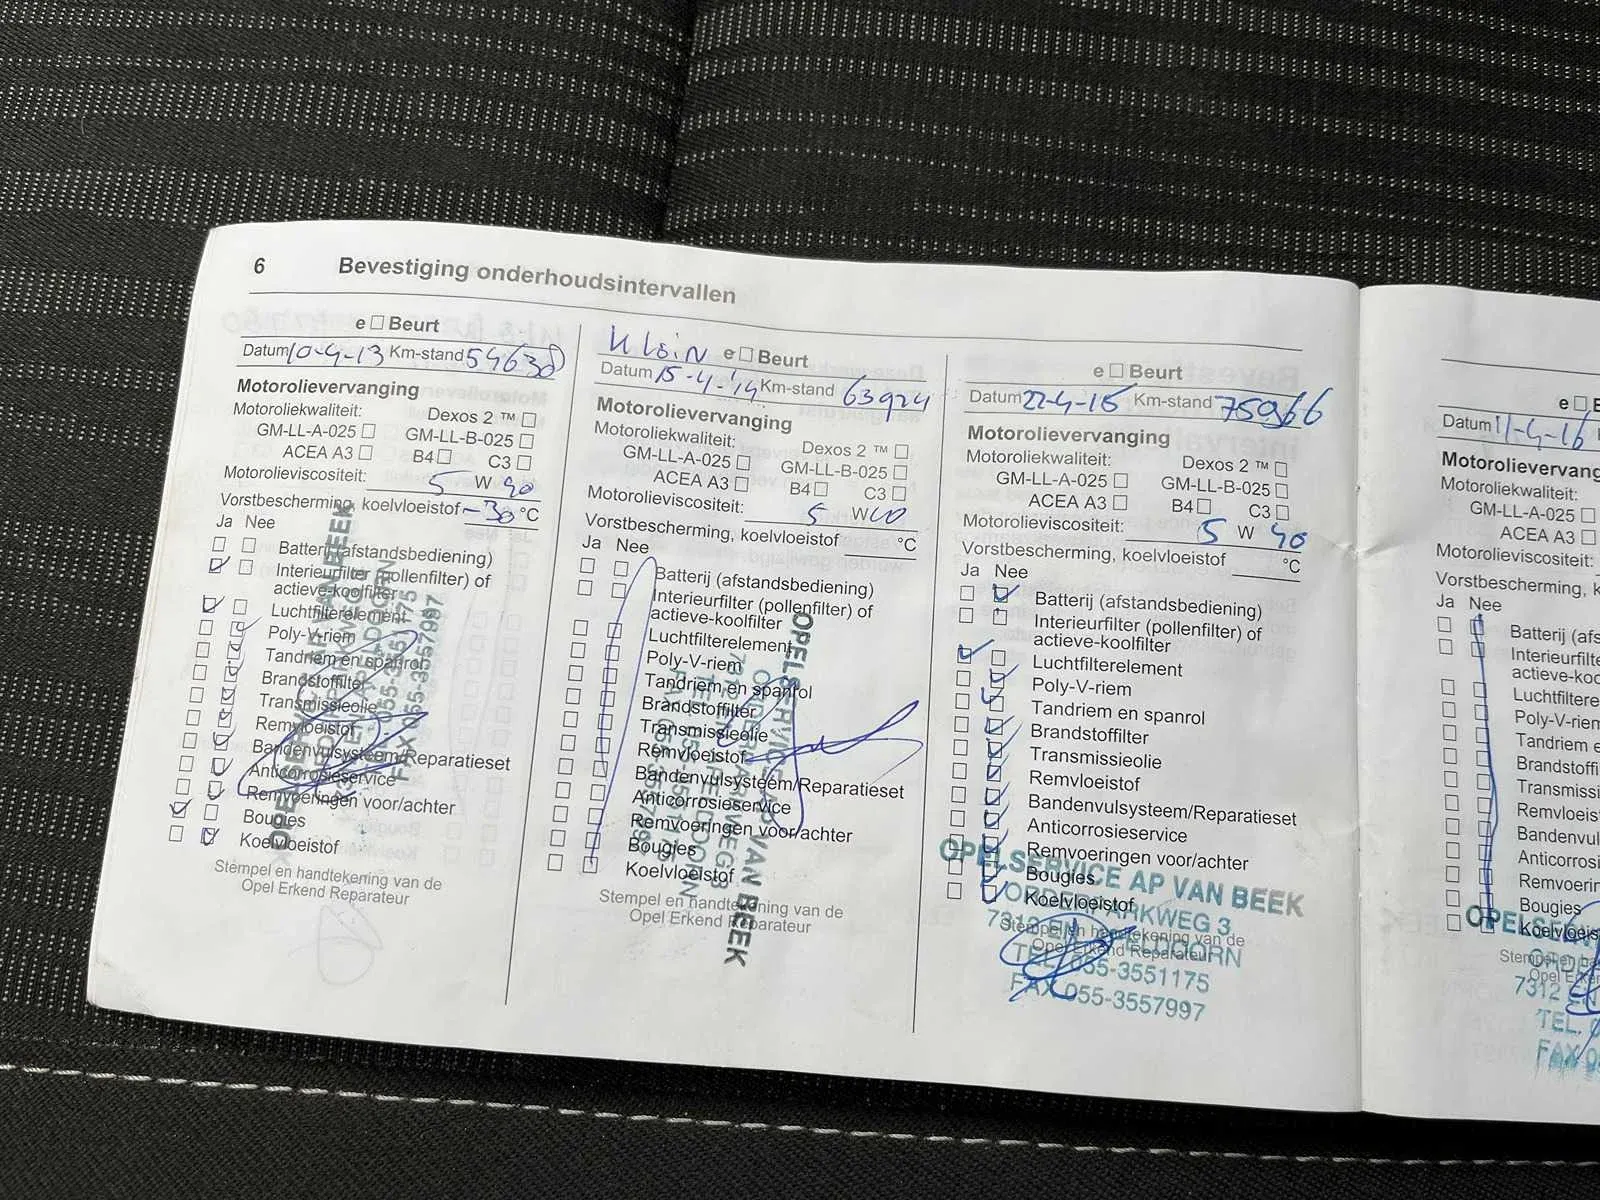 6 Bevestiging onderhoudsintervallen
e □ Beurt
Datum 10-4-13 Km-stand 54638
Motorolievervanging
Motoroliekwaliteit: Dexos 2 ™ □
GM-LL-A-025 □ GM-LL-B-025 □
ACEA A3 □ B4 □ C3 □
Motorolieviscositeit: 5 W 40
Vorstbescherming, koelvloeistof -30 °C
Ja Nee
Batterij (afstandsbediening)
Interieurfilter (pollenfilter) of
actieve-koolfilter
Luchtfilterelement
Poly-V-riem
Tandriem en spanrol
Brandstoffilter
Transmissieolie
Remvloeistof
Bandenvulsysteem/Reparatieset
Anticorrosieservice
Remvoeringen voor/achter
Bougies
Koelvloeistof
Stempel en handtekening van de
Opel Erkend Reparateur
055-3551175
FAX 055-3557997
Klein e □ Beurt
Datum 15-4-'14 Km-stand 63924
Motorolievervanging
Motoroliekwaliteit: Dexos 2 ™ □
GM-LL-A-025 □ GM-LL-B-025 □
ACEA A3 □ B4 □ C3 □
Motorolieviscositeit: 5 W 40
Vorstbescherming, koelvloeistof °C
Ja Nee
Batterij (afstandsbediening)
Interieurfilter (pollenfilter) of
actieve-koolfilter
Luchtfilterelement
Poly-V-riem
Tandriem en spanrol
Brandstoffilter
Transmissieolie
Remvloeistof
Bandenvulsysteem/Reparatieset
Anticorrosieservice
Remvoeringen voor/achter
Bougies
Koelvloeistof
Stempel en handtekening van de
Opel Erkend Reparateur
OPELSERVICE AP VAN BEEK
e □ Beurt
Datum 22-4-15 Km-stand 75966
Motorolievervanging
Motoroliekwaliteit: Dexos 2 ™ □
GM-LL-A-025 □ GM-LL-B-025 □
ACEA A3 □ B4 □ C3 □
Motorolieviscositeit: 5 W 40
Vorstbescherming, koelvloeistof °C
Ja Nee
Batterij (afstandsbediening)
Interieurfilter (pollenfilter) of
actieve-koolfilter
Luchtfilterelement
Poly-V-riem
Tandriem en spanrol
Brandstoffilter
Transmissieolie
Remvloeistof
Bandenvulsysteem/Reparatieset
Anticorrosieservice
Remvoeringen voor/achter
Bougies
Koelvloeistof
Stempel en handtekening van de
Opel Erkend Reparateur
OPELSERVICE AP VAN BEEK
ORDERPARKWEG 3
7312 EN APELDOORN
TEL. 055-3551175
FAX 055-3557997
e □ B
Datum 11-4-16
Motorolievervang
Motoroliekwaliteit:
GM-LL-A-025 □
ACEA A3 □
Motorolieviscositeit:
Vorstbescherming, k
Ja Nee
Batterij (afs
Interieurfilte
actieve-koo
Luchtfiltere
Poly-V-riem
Tandriem e
Brandstoffi
Transmissi
Remvloeis
Bandenvul
Anticorrosi
Remvoerin
Bougies
Koelvloeis
Stempel en ha
Opel Erke
OPELSE
7312 EN
TEL.
FAX 0